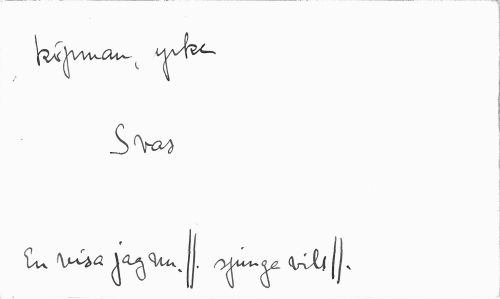 köpman, yrke
Svas
En visa jag nu. ||. sjunge vill ||.